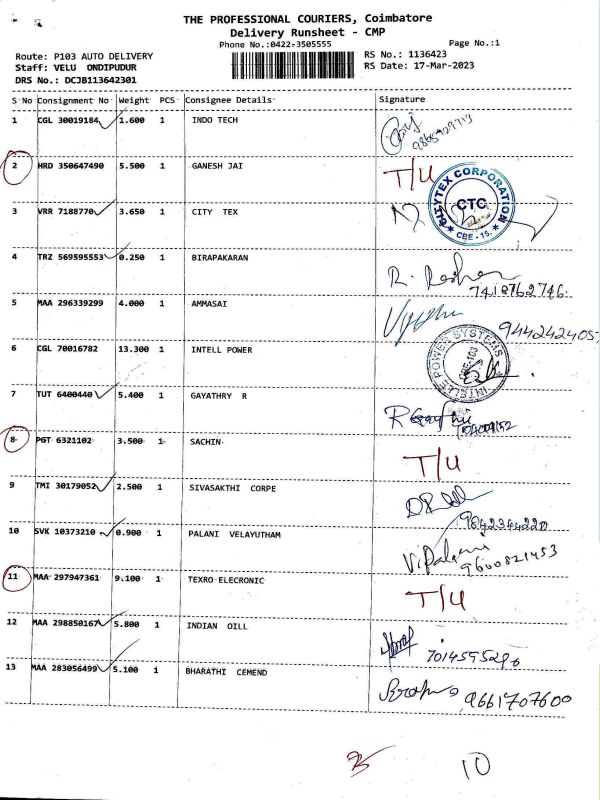 THE PROFESSIONAL COURIERS, Coimbatore
Delivery Runsheet - CMP
Phone No.:0422-3505555
Page No.:1
Route: P103 AUTO DELIVERY
RS No.: 1136423
Staff: VELU ONDIPUDUR
RS Date: 17-Mar-2023
DRS No.: DCJB113642301
S No Consignment No Weight PCS Consignee Details Signature
1 CGL 30019184 1.600 1 INDO TECH
2 HRD 350647490 5.500 1 GANESH JAI T/U
CLEYTEX CORPORATION
CTC
CBE - 15.
3 VRR 7188770 3.650 1 CITY TEX
4 TRZ 569595553 0.250 1 BIRAPAKARAN
7418762746.
5 MAA 296339299 4.000 1 AMMASAI
9442424057
6 CGL 70016782 13.300 1 INTELL POWER
INTELLE POWER SYSTEMS
7 TUT 6400440 5.400 1 GAYATHRY R
8 PGT 6321102 3.500 1 SACHIN T/U
9 TMI 30179052 2.500 1 SIVASAKTHI CORPE
10 SVK 10373210 0.900 1 PALANI VELAYUTHAM
V.Palani
9600821453
11 MAA 297947361 9.100 1 TEXRO ELECRONIC T/U
12 MAA 298850167 5.800 1 INDIAN OILL
13 MAA 283056499 5.100 1 BHARATHI CEMEND
9661707600
10